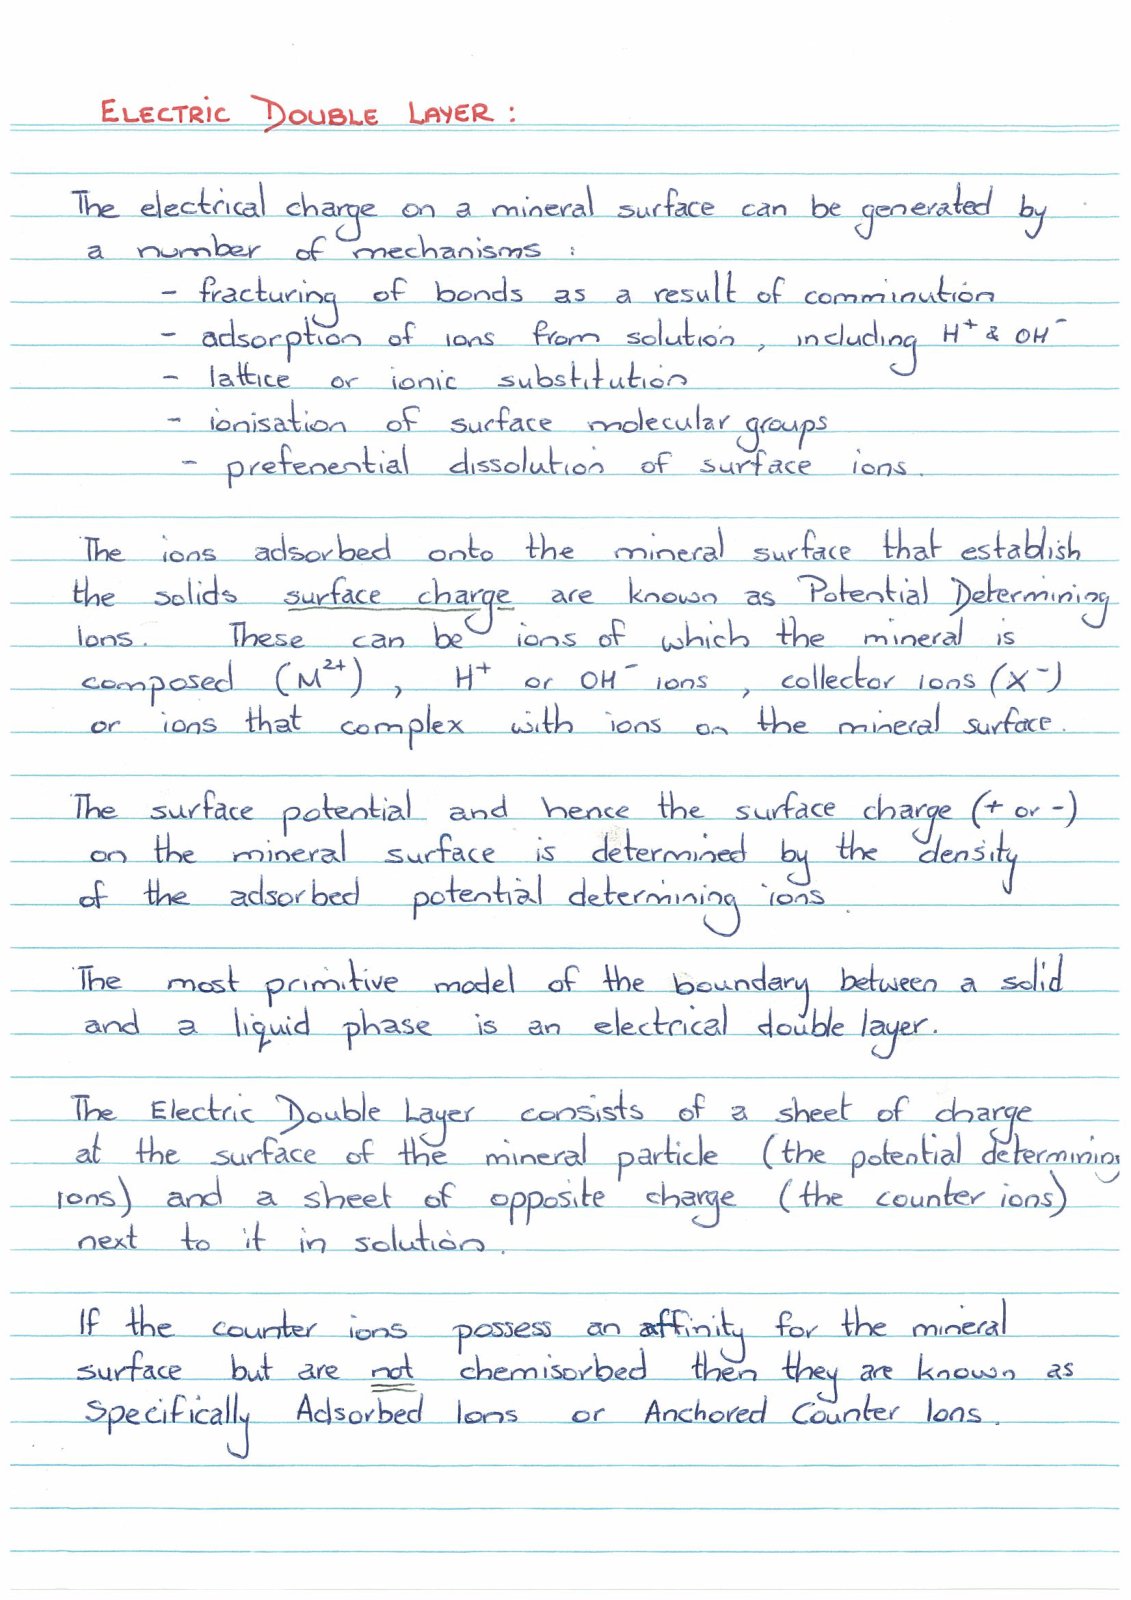 ELECTRIC DOUBLE LAYER :
The electrical charge on a mineral surface can be generated by
a number of mechanisms :
- fracturing of bonds as a result of comminution
- adsorption of ions from solution, including H⁺ & OH⁻
- lattice or ionic substitution
- ionisation of surface molecular groups
- prefenential dissolution of surface ions.
The ions adsorbed onto the mineral surface that establish
the solids surface charge are known as Potential Determining
Ions. These can be ions of which the mineral is
composed (M²⁺), H⁺ or OH⁻ ions, collector ions (X⁻)
or ions that complex with ions on the mineral surface.
The surface potential and hence the surface charge (+ or -)
on the mineral surface is determined by the density
of the adsorbed potential determining ions.
The most primitive model of the boundary between a solid
and a liquid phase is an electrical double layer.
The Electric Double Layer consists of a sheet of charge
at the surface of the mineral particle (the potential determining
ions) and a sheet of opposite charge (the counter ions)
next to it in solution.
If the counter ions possess an affinity for the mineral
surface but are not chemisorbed then they are known as
Specifically Adsorbed Ions or Anchored Counter Ions.